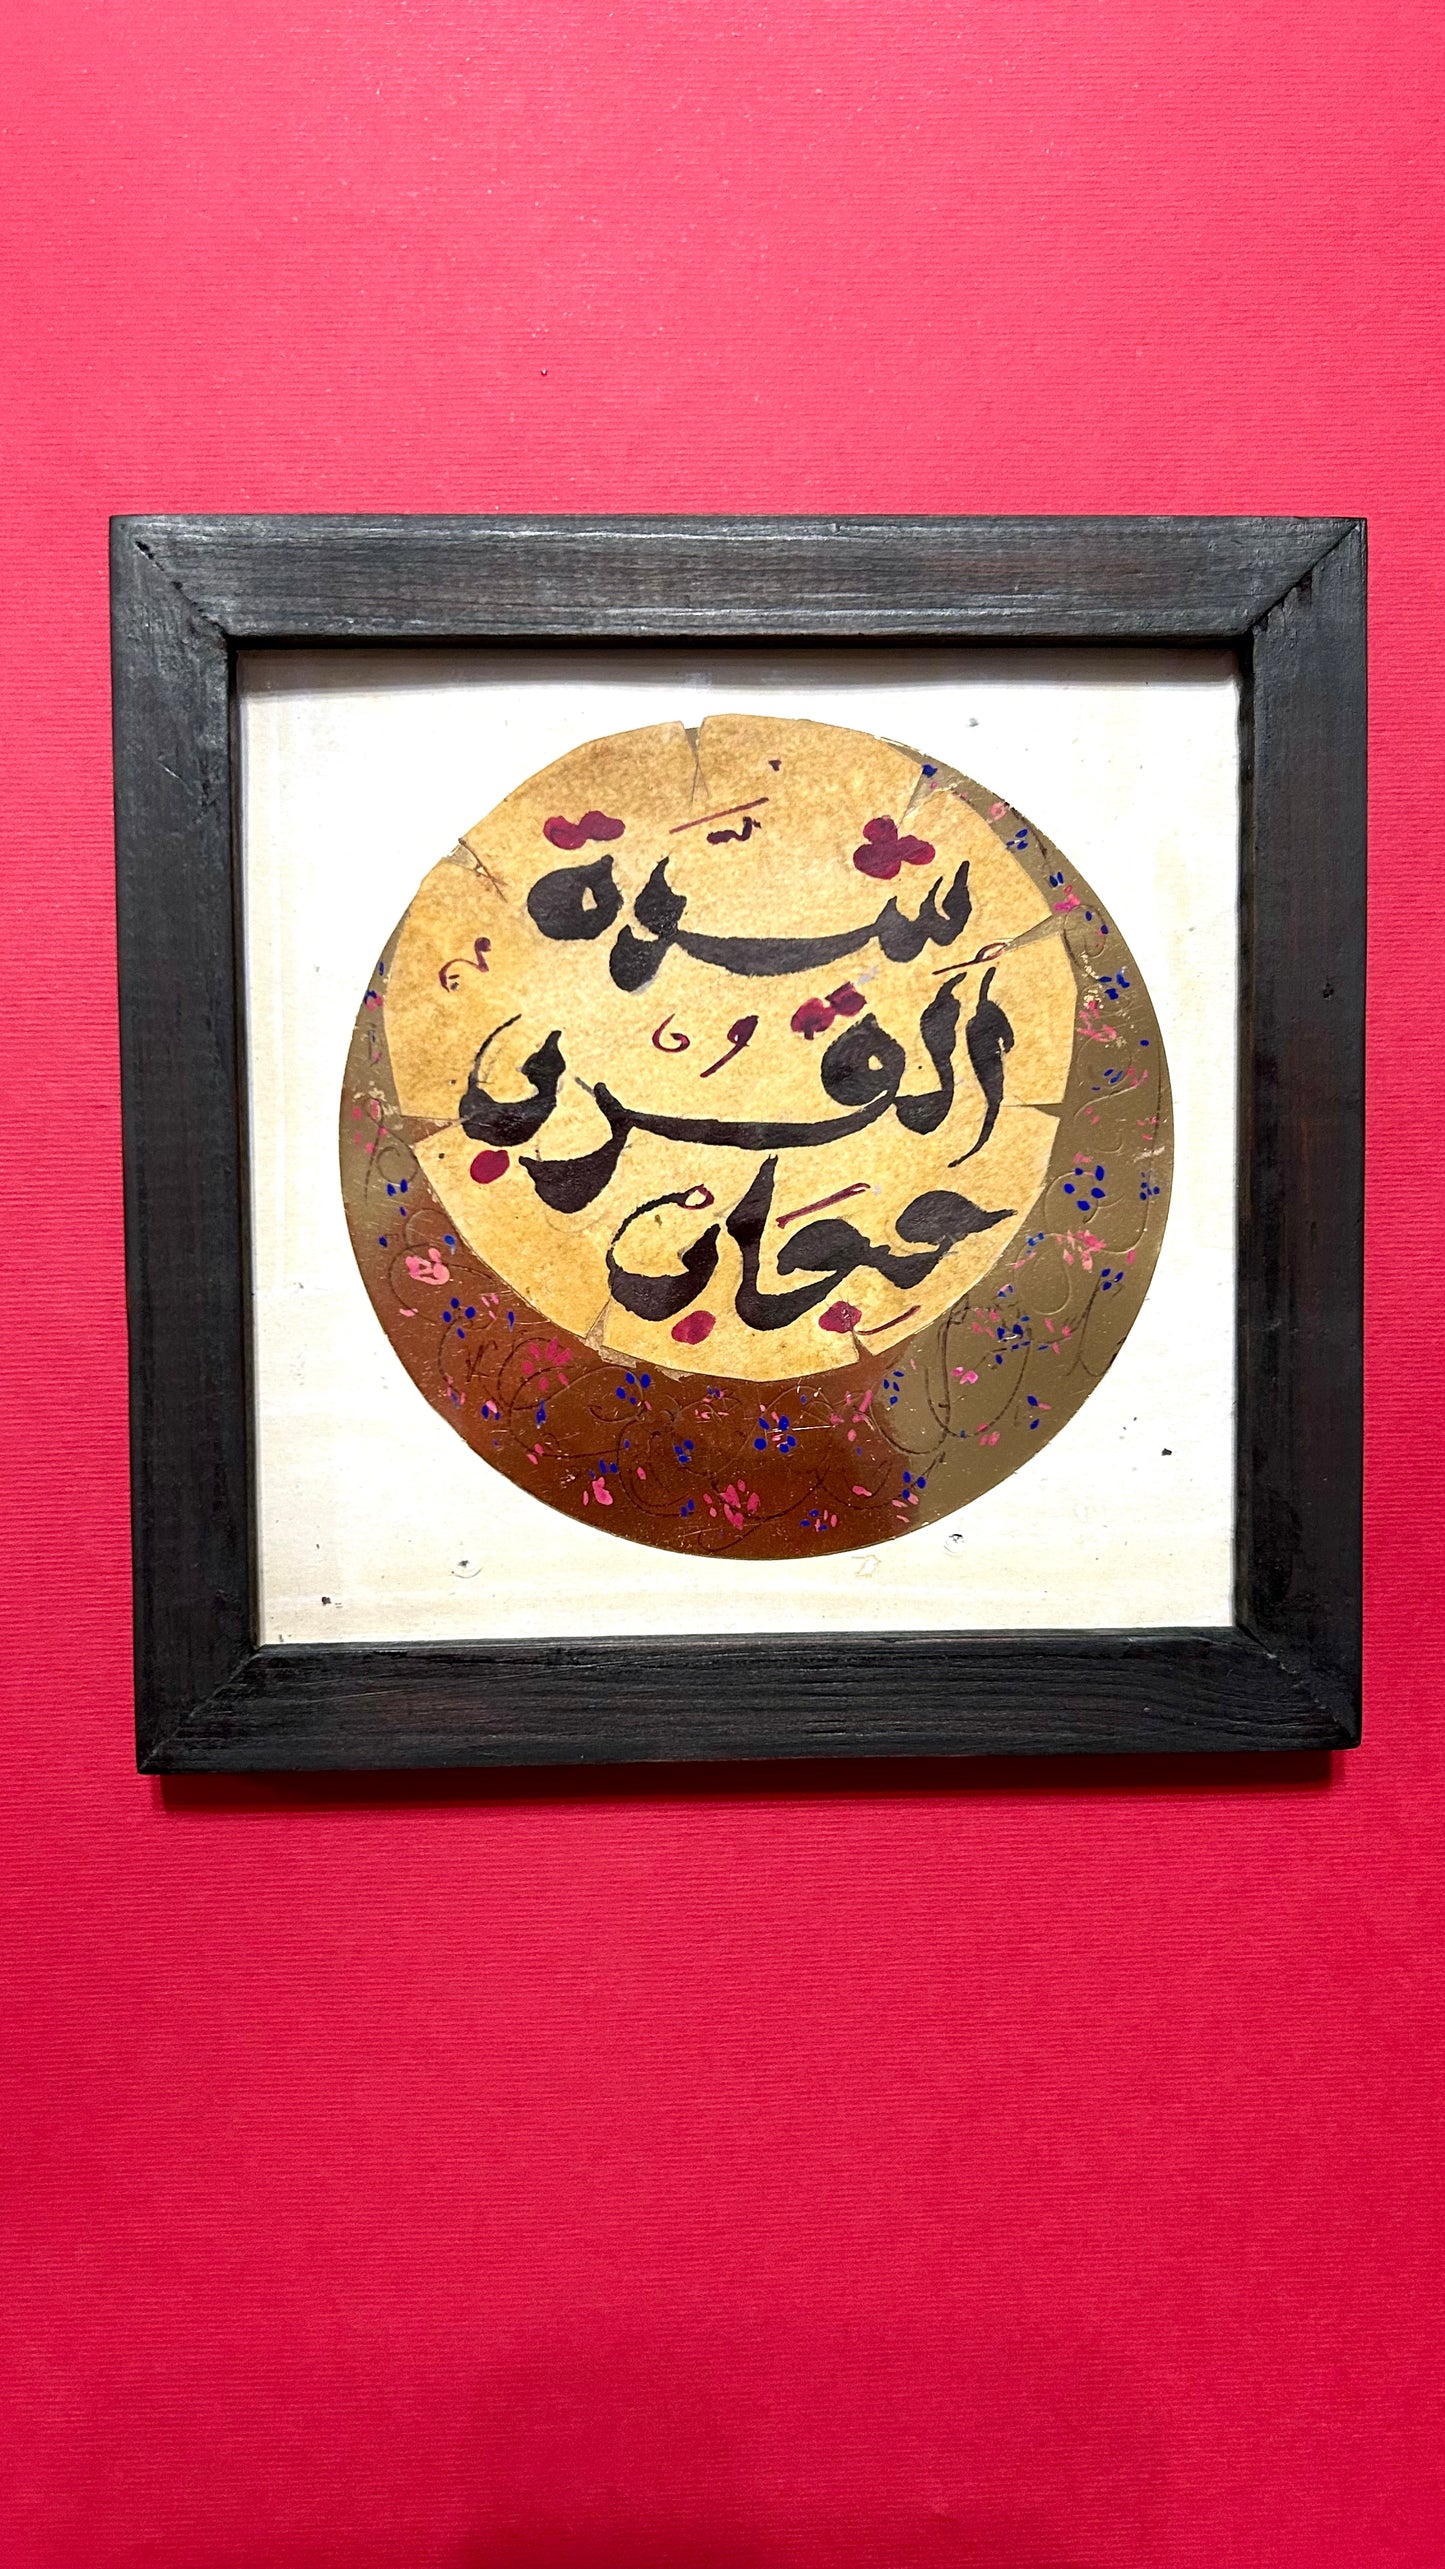 شدَّة
القُرْب
حِجَابْ